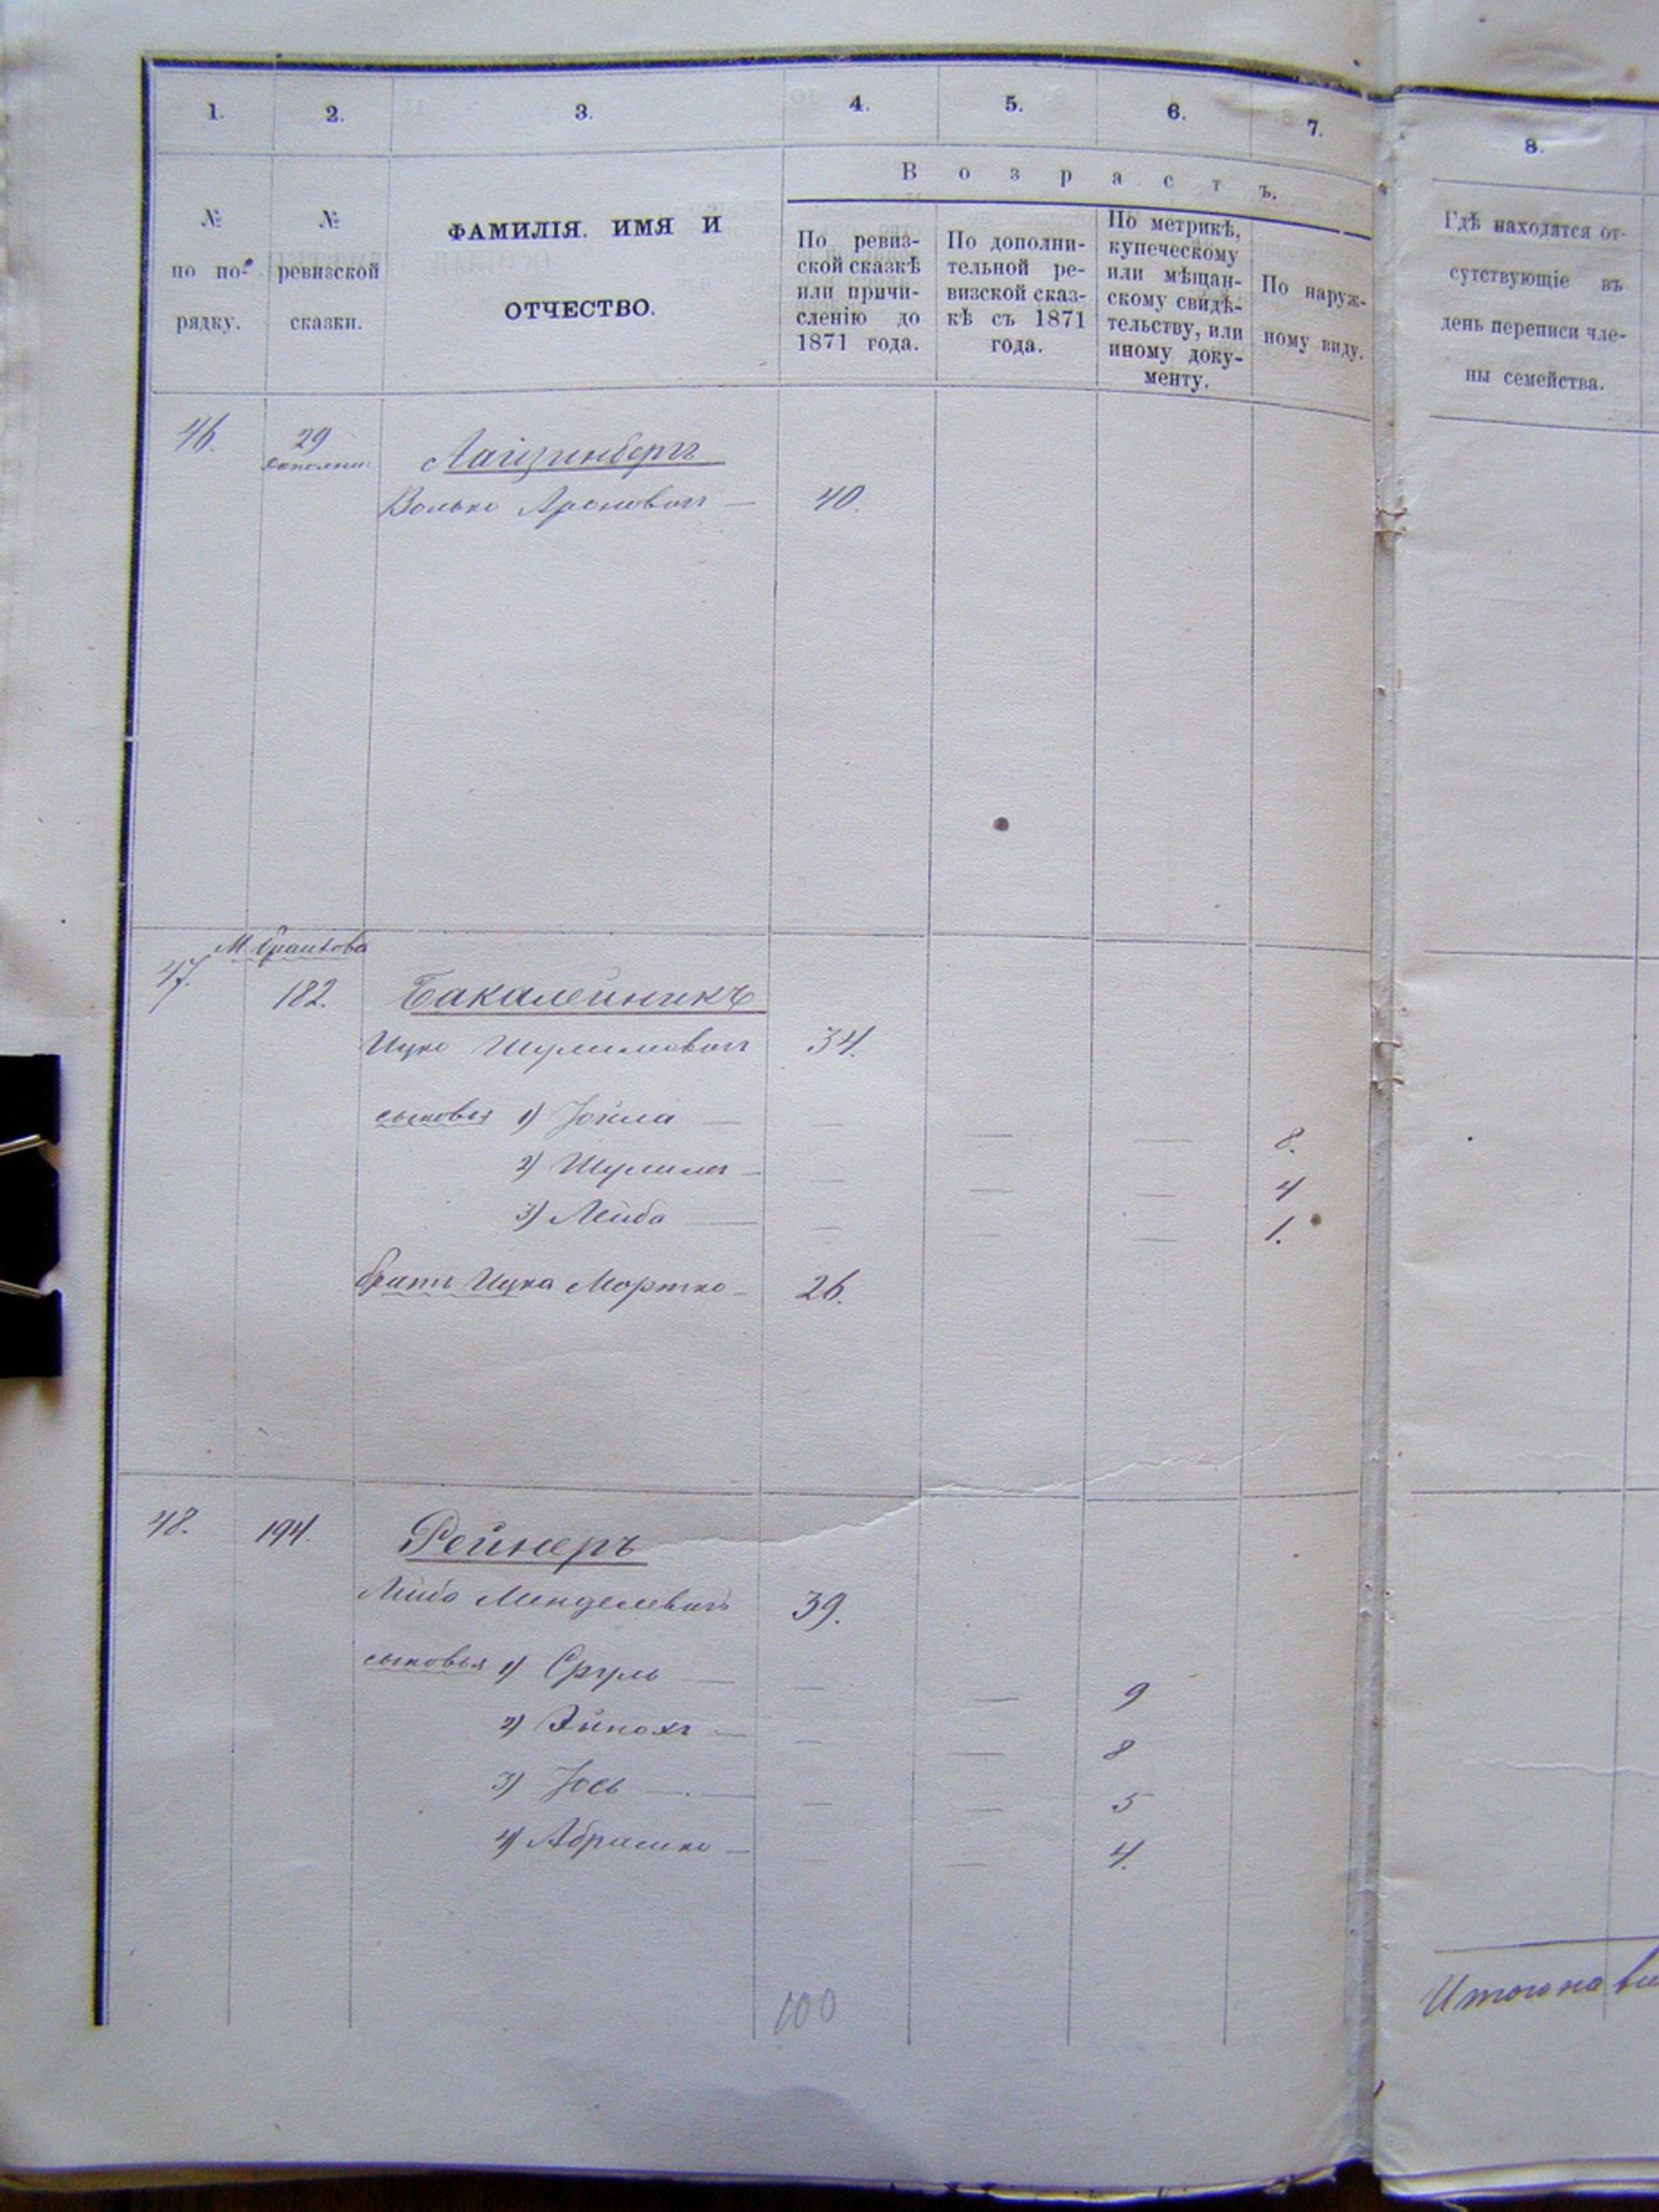 1.
2.
3.
4.
5.
6.
7.
8.
В о з р а с т ъ.
№
по по-
рядку.
№
ревизской
сказки.
ФАМИЛІЯ, ИМЯ И
ОТЧЕСТВО.
По ревиз-
ской сказкѣ
или причи-
сленію до
1871 года.
По дополни-
тельной ре-
визской сказ-
кѣ съ 1871
года.
По метрикѣ,
купеческому
или мѣщан-
скому свидѣ-
тельству, или
иному доку-
менту.
По наруж-
ному виду.
Гдѣ находятся от-
сутствующіе въ
день переписи чле-
ны семейства.
46. 29
Лайзинбергъ
Волько Ароновичъ — 40.
47. 182. Бакалейникъ
Ицко Шулимовичъ 34.
сыновья 1) Іойла — — — — 8.
2) Шулимъ — — — — 4
3) Лейба — — — — 1.
братъ Ицка Мортко — 26.
48. 194. Рейнеръ
Лейба Менделевичъ 39.
сыновья 1) Сруль — — — 9
2) Эйнохъ — — — 8
3) Іось — — — 5
4) Абрашко — — — 4.
100
Итого на